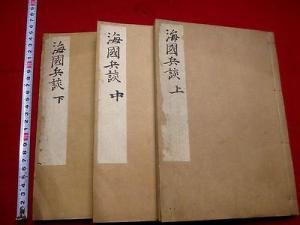 海國兵談 上
海國兵談 中
海國兵談 下